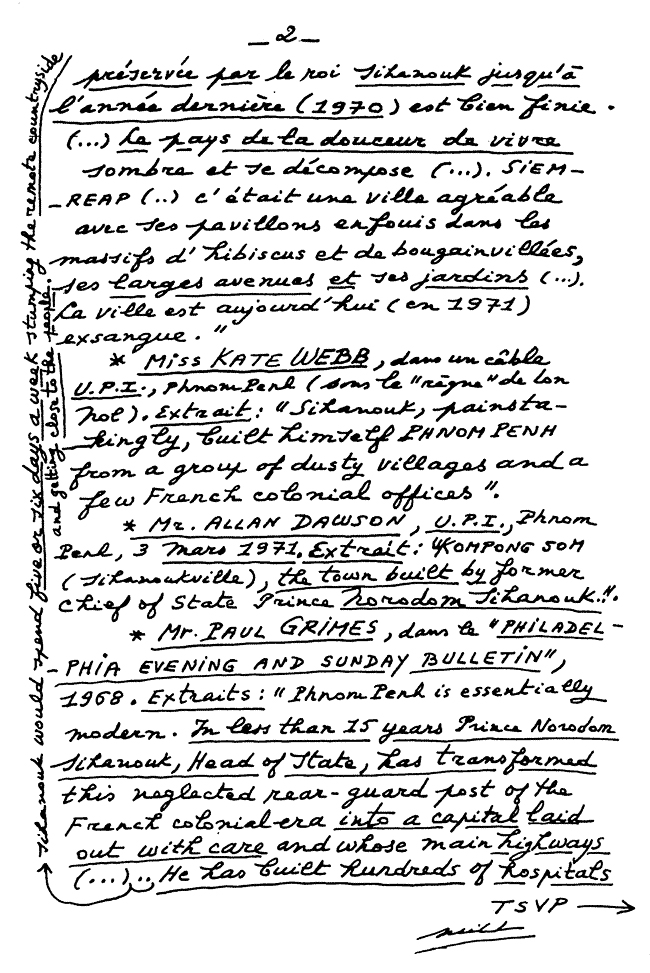 _ 2 _
préservée par le roi Sihanouk jusqu'à
l'année dernière (1970) est bien finie.
(...) Le pays de la douceur de vivre
sombre et se décompose (...). SIEM-
-REAP (..) c'était une ville agréable
avec ses pavillons enfouis dans les
massifs d'hibiscus et de bougainvillées,
ses larges avenues et ses jardins (...).
La ville est aujourd'hui (en 1971)
exsangue."
* Miss KATE WEBB, dans un câble
U.P.I., Phnom Penh (sous le "règne" de Lon
Nol). Extrait : "Sihanouk, painsta-
-kingly, built himself PHNOM PENH
from a group of dusty villages and a
few French colonial offices".
* Mr. ALLAN DAWSON, U.P.I., Phnom
Penh, 3 mars 1971. Extrait : "KOMPONG SOM
(Sihanoukville), the town built by former
Chief of State Prince Norodom Sihanouk.".
* Mr. PAUL GRIMES, dans le "PHILADEL-
-PHIA EVENING AND SUNDAY BULLETIN",
1968. Extraits : "Phnom Penh is essentially
modern. In less than 15 years Prince Norodom
Sihanouk, Head of State, has transformed
this neglected rear-guard post of the
French colonial era into a capital laid
out with care and whose main highways
(...)... He has built hundreds of hospitals
Sihanouk would spend five or six days a week stumping the remote countryside
and getting close to the people..
TSVP →